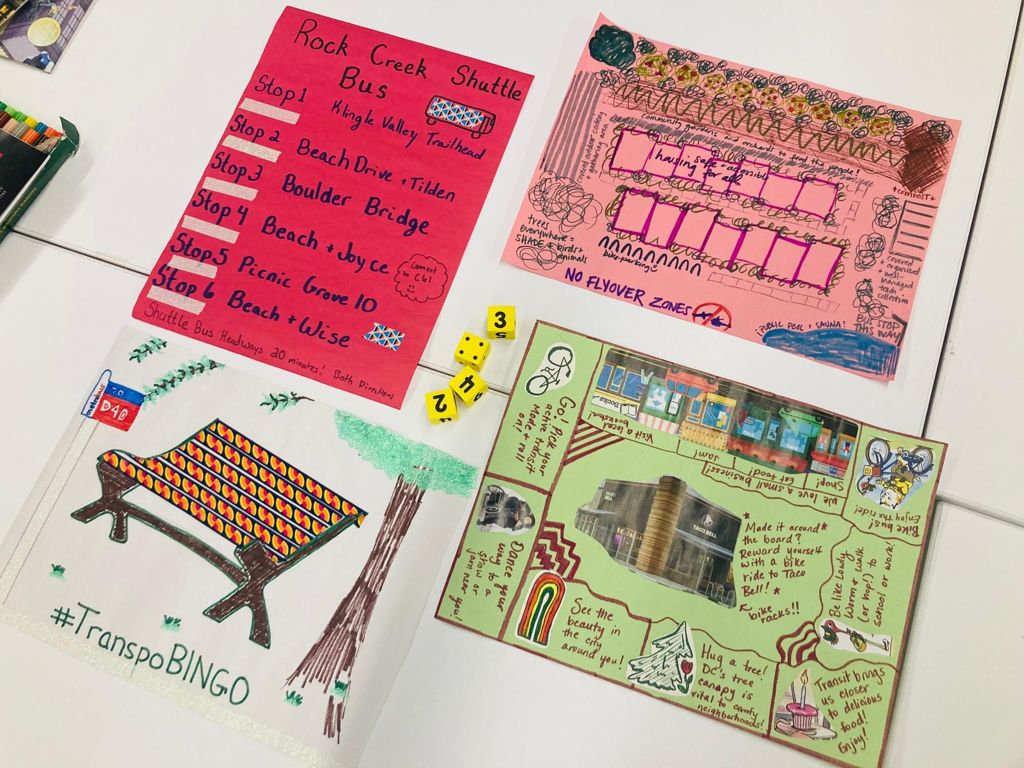 Rock Creek Shuttle
Bus
Stop 1
Klingle Valley Trailhead
Stop 2
Beach Drive + Tilden
Stop 3
Boulder Bridge
Stop 4
Beach + Joyce
Stop 5
Picnic Grove 10
Stop 6
Beach + Wise
Connect
to C61
Shuttle Bus Headways 20 minutes! Both Directions
community gardens
orchards to feed the people!
safe + accessible
housing for all
+ gathering area
trees
everywhere =
SHADE + birds +
animals
bike parking
NO FLYOVER ZONES
+ compost +
covered
organized
+ well-
managed
trash
collection
BUS STOP
THIS WAY
¡PUBLIC POOL + SAUNA!
3
4
2
metrobus
D40
#TranspoBINGO
Go! Pick your
active transit
mode + roll
on!
Books
Visit a local
bookstore!
Jam!
Eat food!
Shop!
We love a small business!
Bike bus!
Enjoy the ride!
TACO BELL
*Made it around*
the board?
Reward yourself
with a bike
ride to Taco
Bell! *
bike
racks!!
Be like Lowly
Worm + walk
(or hop!) to
school or work!
Dance your
way to a
show or
jam near
you!
See the
beauty in
the city
around you!
Hug a tree!
DC's tree
canopy is
vital to comfy
neighborhoods!
Transit brings
us closer
to delicious
food!
Enjoy!